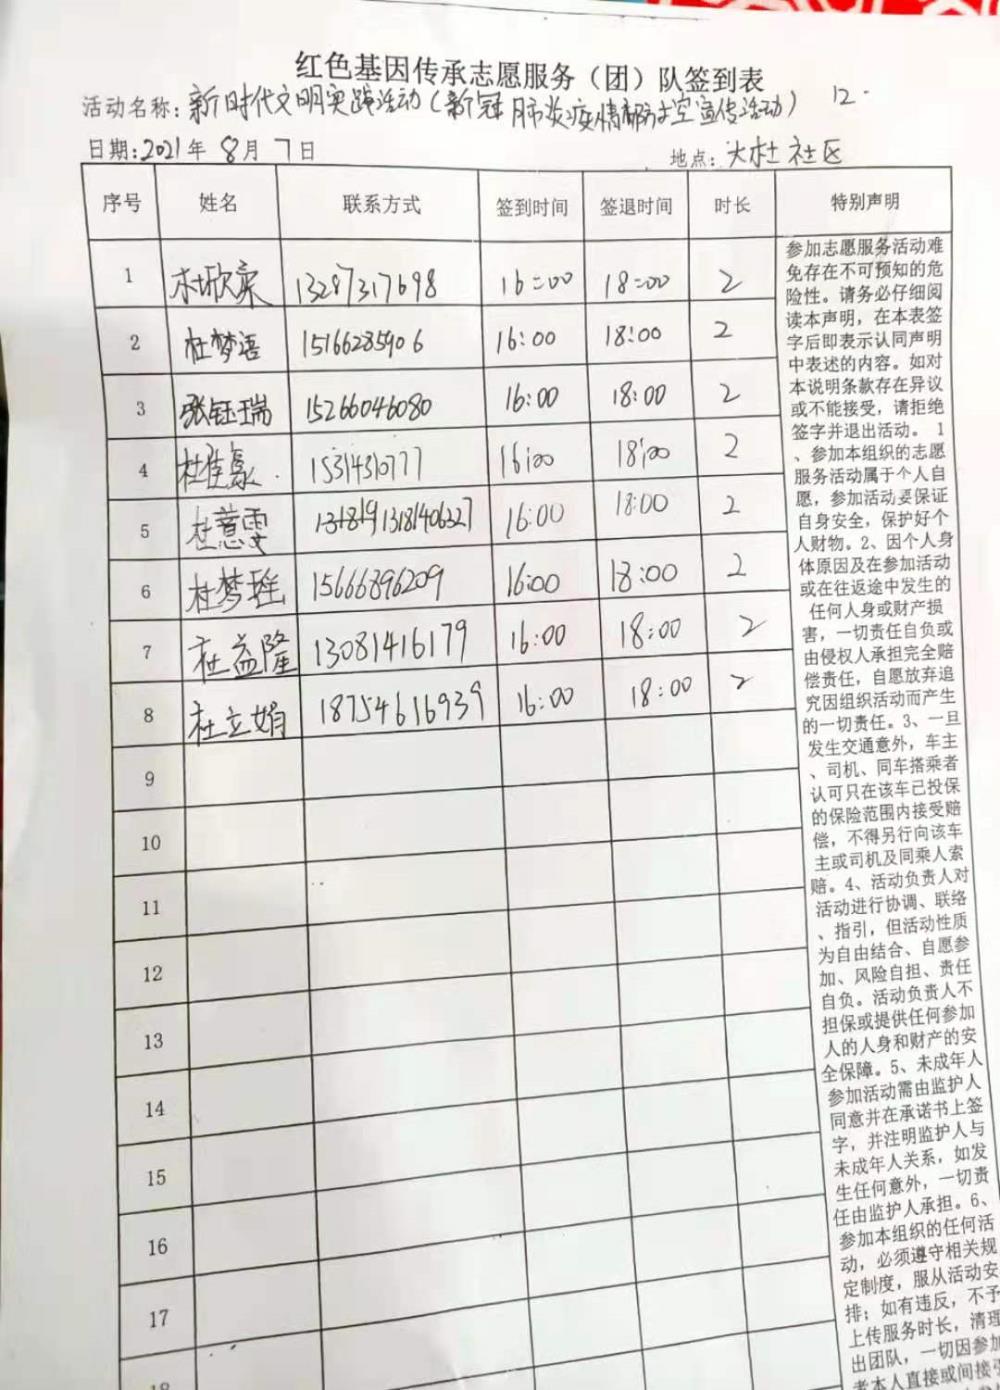 红色基因传承志愿服务（团）队签到表
活动名称：新时代文明实践活动（新冠肺炎疫情防空宣传活动） 12.
日期：2021年 8月 7日 地点：大杜社区
序号 姓名 联系方式 签到时间 签退时间 时长 特别声明
1 杜欣奕 13287317698 16:00 18:00 2
2 杜梦语 15166285906 16:00 18:00 2
3 张钰瑞 15266046080 16:00 18:00 2
4 杜佳豪 15314310777 16:00 18:00 2
5 杜薏雯 13181406327 16:00 18:00 2
6 杜梦瑶 15666896209 16:00 18:00 2
7 杜益隆 13081416179 16:00 18:00 2
8 杜立娟 18754616939 16:00 18:00 2
9
10
11
12
13
14
15
16
17
18
参加志愿服务活动难
免存在不可预知的危
险性。请务必仔细阅
读本声明，在本表签
字后即表示认同声明
中表述的内容。如对
本说明条款存在异议
或不能接受，请拒绝
签字并退出活动。 1
、参加本组织的志愿
服务活动属于个人自
愿，参加活动要保证
自身安全，保护好个
人财物。2、因个人身
体原因及在参加活动
或在往返途中发生的
任何人身或财产损
害，一切责任自负或
由侵权人承担完全赔
偿责任，自愿放弃追
究因组织活动而产生
的一切责任。3、一旦
发生交通意外，车主
、司机、同车搭乘者
认可只在该车已投保
的保险范围内接受赔
偿，不得另行向该车
主或司机及同乘人索
赔。4、活动负责人对
活动进行协调、联络
、指引，但活动性质
为自由结合、自愿参
加、风险自担、责任
自负。活动负责人不
担保或提供任何参加
人的人身和财产的安
全保障。5、未成年人
参加活动需由监护人
同意并在承诺书上签
字，并注明监护人与
未成年人关系，如发
生任何意外，一切责
任由监护人承担。6、
参加本组织的任何活
动，必须遵守相关规
定制度，服从活动安
排；如有违反，不予
上传服务时长，清理
出团队，一切因参加
者本人直接或间接